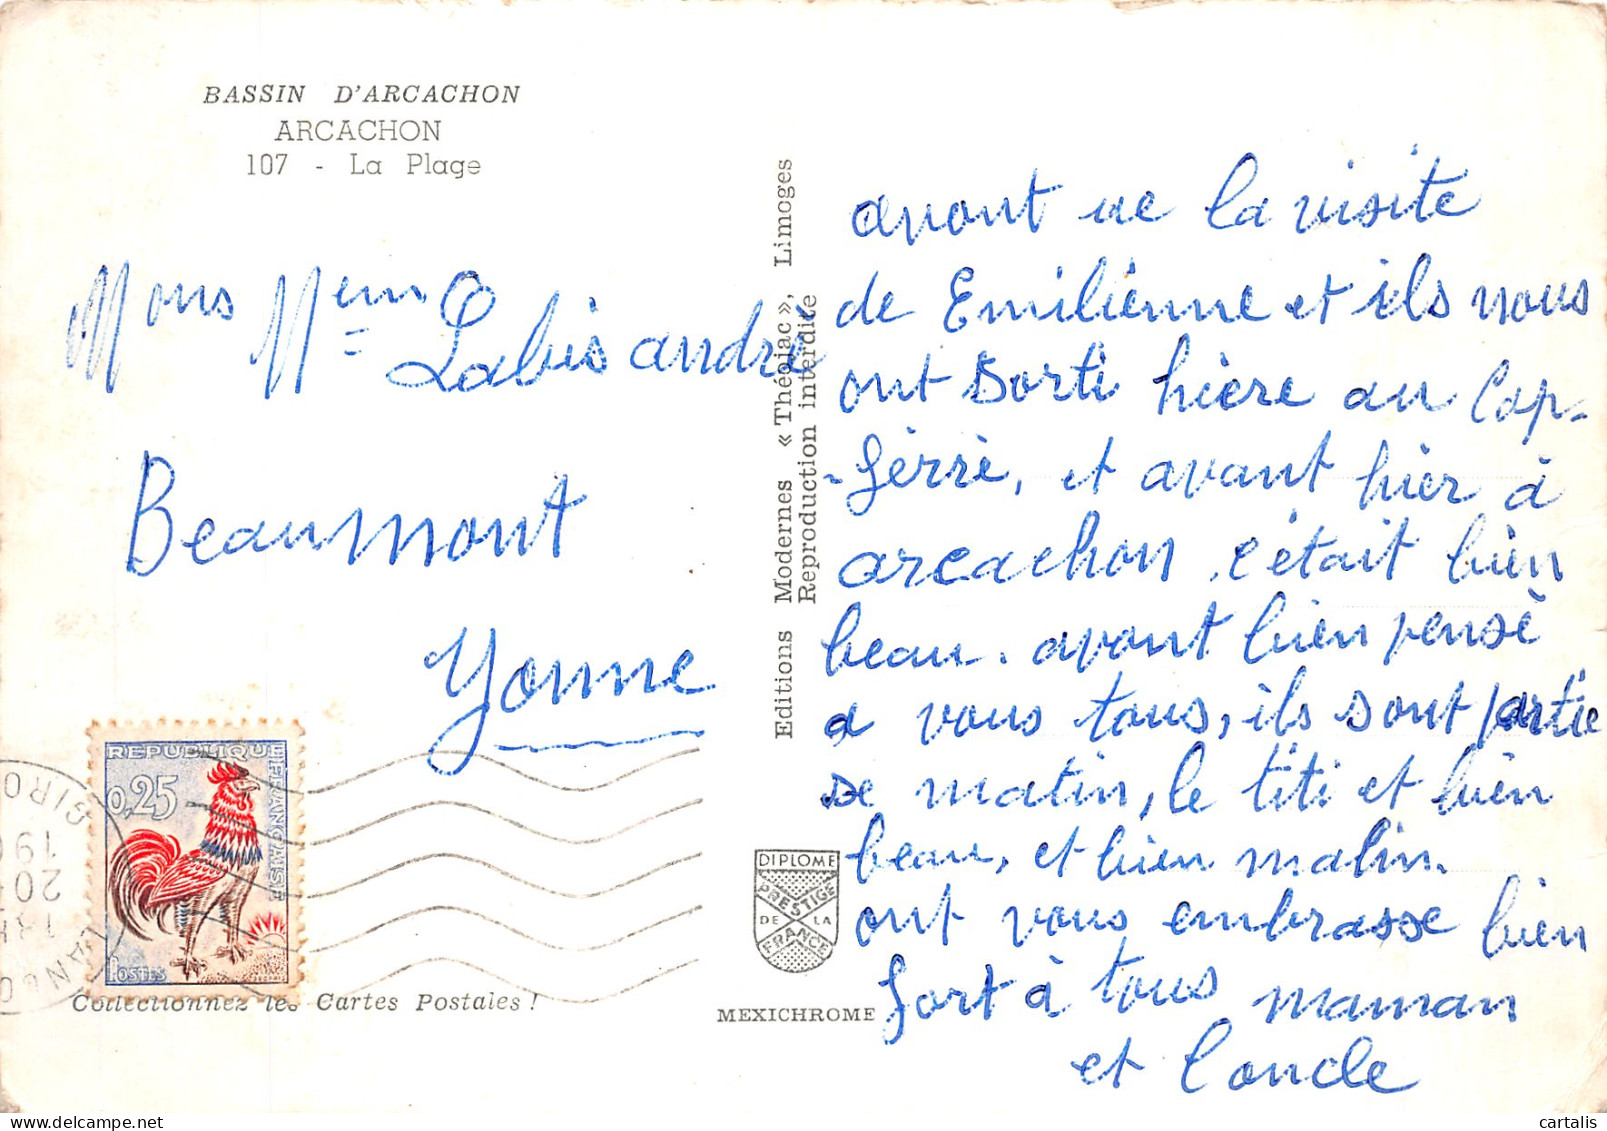 BASSIN D'ARCACHON
ARCACHON
107 - La Plage
Mons Mem Labis andrè
Beaumont
Yonne
REPUBLIQUE FRANÇAISE
0,25
POSTES
GIRO
Collectionnez les Cartes Postales !
Editions Modernes « Théojac », Limoges
Reproduction interdite
DIPLOME
PRESTIGE
DE LA
FRANCE
MEXICHROME
avont ue la visite
de Emilienne et ils nous
ont Sorti hière au Cap-
-ferrè, et avant hier à
arcachon, c'était bien
beau. avont bien pensè
a vous tous, ils sont partie
se matin, le titi et bien
beau, et bien malin.
ont vous embrasse bien
fort à tous maman
et l'oncle
cartalis